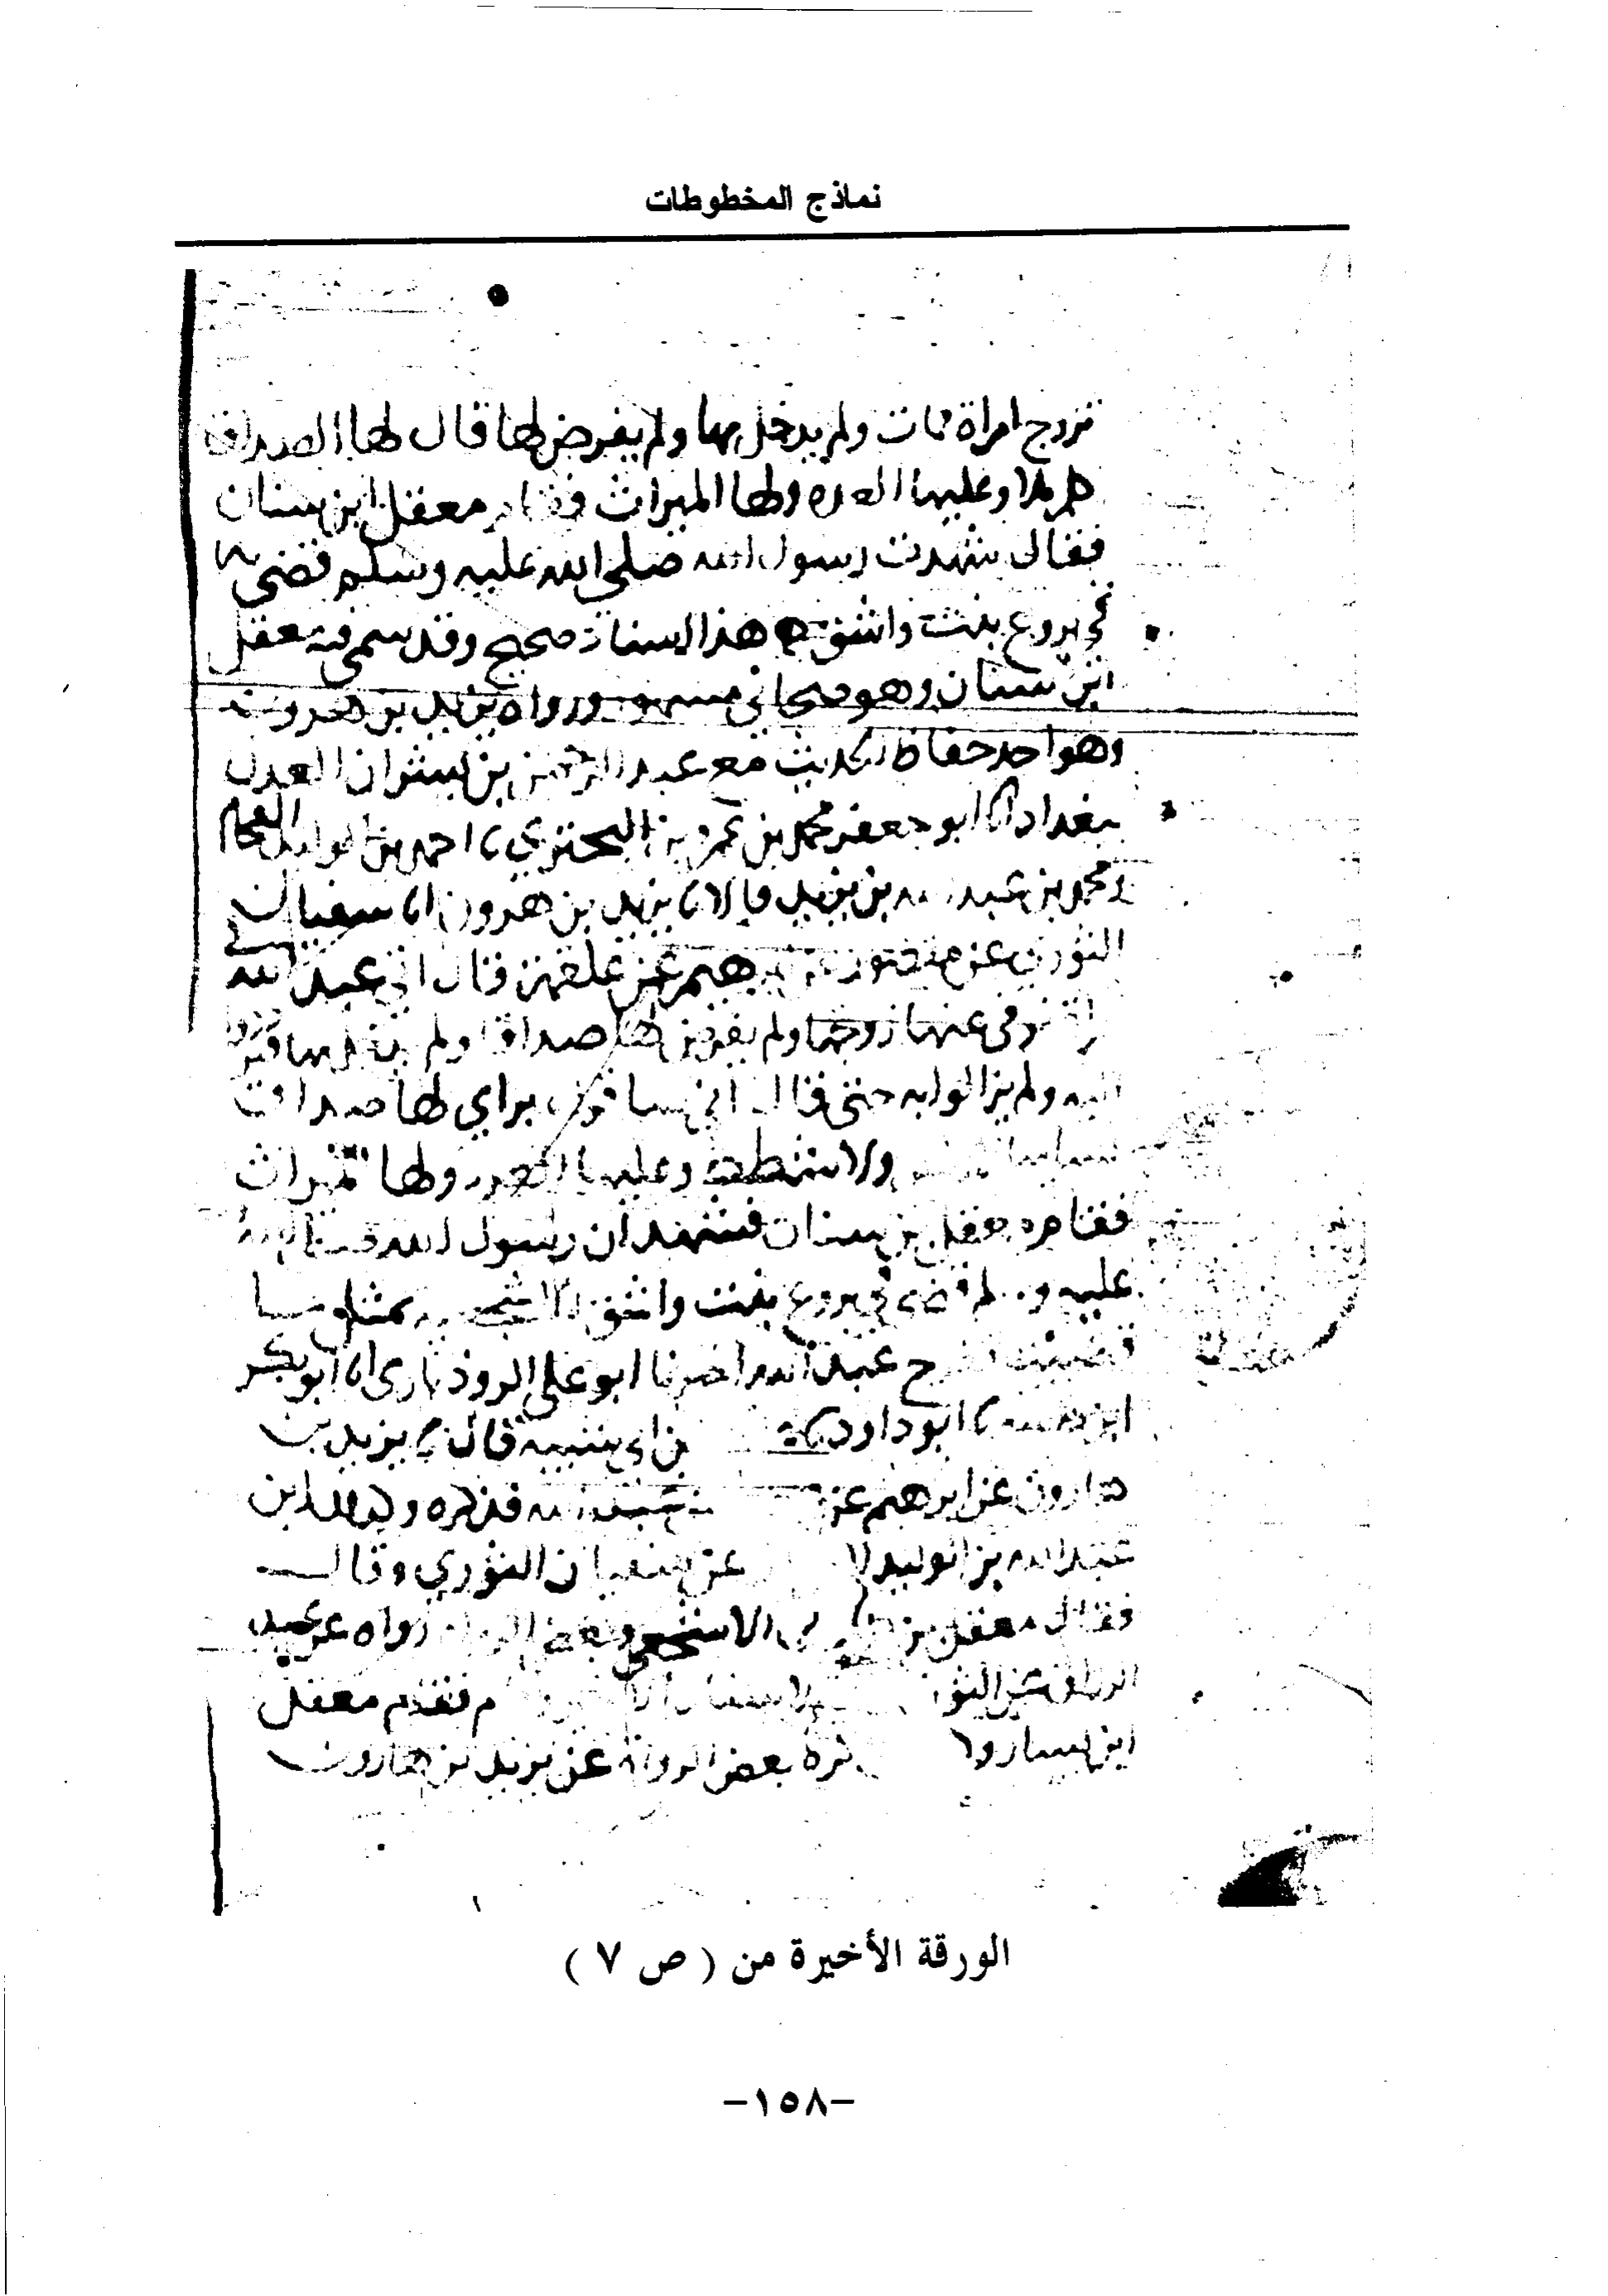 نماذج المخطوطات
تزوج امراة فمات ولم يدخل بها ولم يفرض لها قال لها الصداق
كاملا وعليها العدة ولها الميراث فقام معقل ابن سنان
فقال شهدت رسول الله صلى الله عليه وسلم قضى به
في بروع بنت واشق هذا اسناد صحيح وقد سمي فيه معقل
ابن سنان وهو صحابي مشهور ورواه يزيد بن هرون
وهو احد حفاظ الحديث مع عبد الرحمن بن بشران العدل
ببغداد انا ابو جعفر محمد بن عمرو بن البختري ثنا احمد بن الوليد الفحام
ومحمد بن عبيد الله بن يزيد قالا ثنا يزيد بن هرون انا سفيان
الثوري عن منصور عن ابرهيم عن علقمة قال اتي عبد الله في
توفي عنها زوجها ولم يفرض لها صداقا ولم يدخل بها
اليه ولم يزالوا به حتى قال اني ساقول براي لها صداق
ولا شطط وعليها العدة ولها الميراث
فقام معقل بن سنان فشهد ان رسول الله صلى الله
عليه وسلم قضى في بروع بنت واشق الاشجعية بمثل ما
قضيت ففرح عبد الله اخبرنا ابو علي الروذباري انا ابو بكر
ابن داسة ثنا ابو داود ثنا بن ابي شيبة قال ثنا يزيد بن
هارون عن ابرهيم عن عبد الله فذكره وكذلك ابن
عبد الله بن الوليد عن سفيان الثوري وقال
فقال معقل بن الاشجعي وبعض الرواة رواه عن عبد
الرزاق عن الثوري فقام معقل
ابن يسار بعض الرواة عن يزيد بن هارون
الورقة الأخيرة من ( ص ٧ )
-١٥٨-